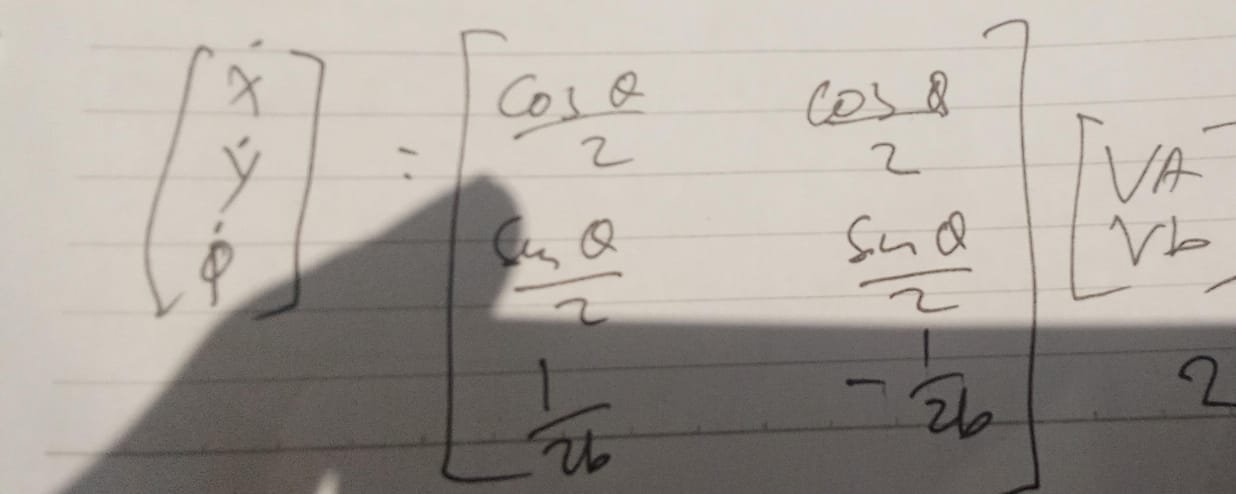 [ẋ ẏ φ̇] = [cos θ/2 cos θ/2
sin θ/2 sin θ/2
1/2b -1/2b] [VA Vb]
2